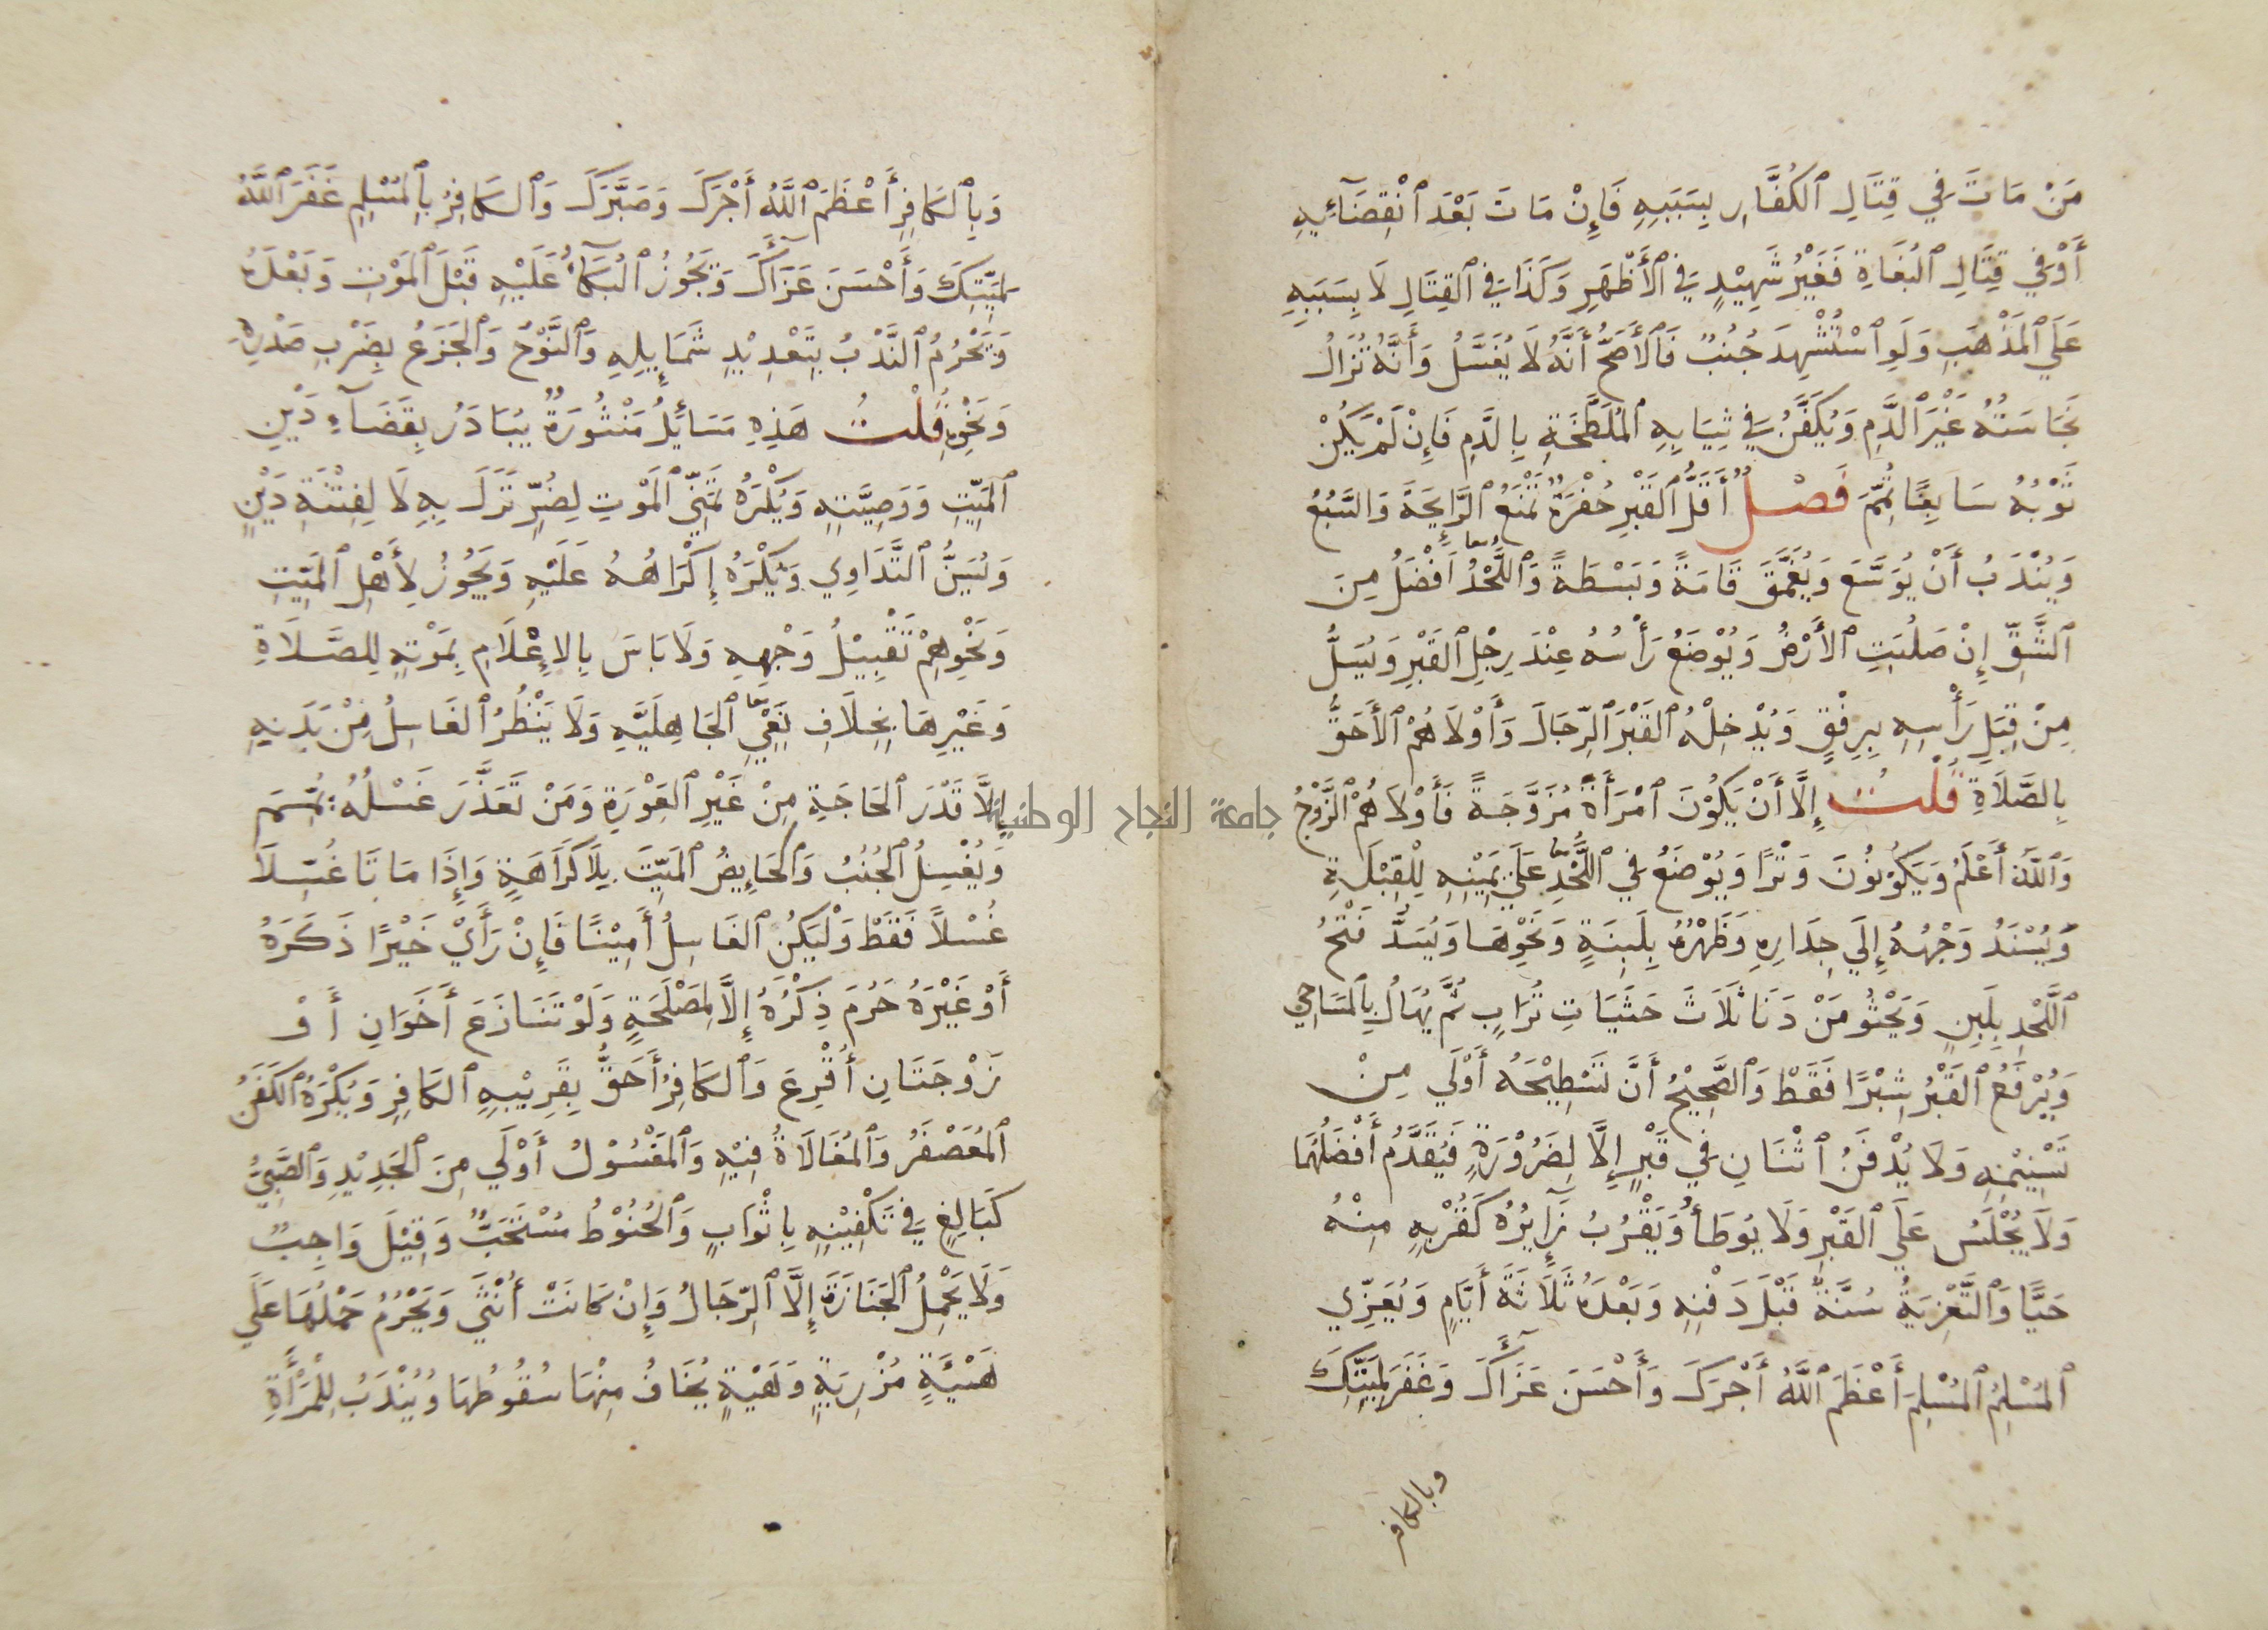 مَنْ مَاتَ فِي قِتَالِ ٱلكُفَّارِ بِسَبَبِهِ فَإِنْ مَاتَ بَعْدَ ٱنْقِضَآئِهِ
أَوْ فِي قِتَالِ ٱلبُغَاةِ فَغَيْرُ شَهِيْدٍ فِي ٱلأَظْهَرِ وَكَذَا فِي ٱلقِتَالِ لَا بِسَبَبِهِ
عَلَي ٱلمَذْهَبِ وَلَوِ ٱسْتُشْهِدَ جُنُبٌ فَٱلأَصَحُّ أَنَّهُ لَا يُغَسَّلُ وَأَنَّهُ تُزَالُ
نَجَاسَتُهُ غَيْرَ ٱلدَّمِ وَيُكَفَّنُ فِي ثِيَابِهِ ٱلمُلَطَّخَةِ بِالدَّمِ فَإِنْ لَمْ يَكُنْ
ثَوْبُهُ سَابِغًا تُمِّمَ فَصْلٌ أَقَلُّ ٱلقَبْرِ حُفْرَةٌ تَمْنَعُ ٱلرَّايِحَةَ وَالسَّبُعَ
وَيُنْدَبُ أَنْ يُوَسَّعَ وَيُعَمَّقَ قَامَةً وَبَسْطَةً وَٱللَّحْدُ أَفْضَلُ مِنَ
ٱلشَّقِّ إِنْ صَلُبَتِ ٱلأَرْضُ وَيُوْضَعُ رَأْسُهُ عِنْدَ رِجْلِ ٱلقَبْرِ وَيُسَلُّ
مِنْ قِبَلِ رَأْسِهِ بِرِفْقٍ وَيُدْخِلُهُ ٱلقَبْرَ ٱلرِّجَالَ وَأَوْلَاهُمْ ٱلأَحَقُّ
بِالصَّلَاةِ قُلْتُ إِلَّا أَنْ يَكُوْنَ ٱمْرَأَةً مُزَوَّجَةً فَأَوْلَاهُمْ ٱلزَّوْجُ
وَٱللَّهُ أَعْلَمُ وَيَكُوْنُوْنَ وَتْرًا وَيُوْضَعُ فِي ٱللَّحْدِ عَلَي يَمِيْنِهِ لِلْقِبْلَةِ
وَيُسْنَدُ وَجْهُهُ إِلَي جِدَارِهِ وَظَهْرُهُ بِلَبِنَةٍ وَنَحْوِهَا وَيُسَدُّ فَتْحُ
ٱللَّحْدِ بِلَبِنٍ وَيَحْثُو مَنْ دَنَا ثَلَاثَ حَثَيَاتِ تُرَابٍ ثُمَّ يُهَالُ بِٱلمَسَاحِي
وَيُرْفَعُ ٱلقَبْرُ شِبْرًا فَقَطْ وَٱلصَّحِيْحُ أَنَّ تَسْطِيْحَهُ أَوْلَي مِنْ
تَسْنِيْمِهِ وَلَا يُدْفَنُ ٱثْنَانِ فِي قَبْرٍ إِلَّا لِضَرُوْرَةٍ فَيُقَدَّمُ أَفْضَلُهُمَا
وَلَا يُجْلَسُ عَلَي ٱلقَبْرِ وَلَا يُوطَأُ وَيَقْرُبُ زَآيِرُهُ كَقُرْبِهِ مِنْهُ
حَيًّا وَٱلتَّعْزِيَةُ سُنَّةٌ قَبْلَ دَفْنِهِ وَبَعْدَهُ ثَلَاثَةَ أَيَّامٍ وَيُعَزِّي
ٱلمُسْلِمُ ٱلمُسْلِمَ أَعْظَمَ ٱللَّهُ أَجْرَكَ وَأَحْسَنَ عَزَآكَ وَغَفَرَ لِمَيِّتِكَ
وبالكافر
وَبِٱلكَافِرِ أَعْظَمَ ٱللَّهُ أَجْرَكَ وَصَبَّرَكَ وَٱلكَافِرُ بِٱلمُسْلِمِ غَفَرَ ٱللَّهُ
لِمَيِّتِكَ وَأَحْسَنَ عَزَآكَ وَيَجُوْزُ ٱلبُكَآءُ عَلَيْهِ قَبْلَ ٱلمَوْتِ وَبَعْدَهُ
وَيَحْرُمُ ٱلنَّدْبُ بِتَعْدِيْدِ شَمَايِلِهِ وَٱلنَّوْحُ وَٱلجَزَعُ بِضَرْبِ صَدْرِهِ
وَنَحْوِهِ قُلْتُ هَذِهِ مَسَائِلُ مَنْثُورَةٌ يُبَادَرُ بِقَضَآءِ دَيْنِ
ٱلمَيِّتِ وَوَصِيَّتِهِ وَيُكْرَهُ تَمَنِّي ٱلمَوْتِ لِضُرٍّ نَزَلَ بِهِ لَا لِفِتْنَةِ دَيْنٍ
وَيُسَنُّ ٱلتَّدَاوِي وَيُكْرَهُ إِكْرَاهُهُ عَلَيْهِ وَيَجُوْزُ لِأَهْلِ ٱلمَيِّتِ
وَنَحْوِهِمْ تَقْبِيْلُ وَجْهِهِ وَلَا بَاسَ بِالإِعْلَامِ بِمَوْتِهِ لِلصَّلَاةِ
وَغَيْرِهَا بِخِلَافِ نَعْيِ ٱلجَاهِلِيَّهِ وَلَا يَنْظُرُ ٱلغَاسِلُ مِنْ بَدَنِهِ
إِلَّا قَدْرَ ٱلحَاجَةِ مِنْ غَيْرِ ٱلعَوْرَةِ وَمَنْ تَعَذَّرَ غَسْلُهُ يُمِّمَ
وَيُغْسِلُ ٱلجُنُبُ وَٱلحَايِضُ ٱلمَيِّتَ بِلَا كَرَاهَةٍ وَإِذَا مَاتَا غُسِّلَا
غُسْلًا فَقَطْ وَلْيَكُنِ ٱلغَاسِلُ أَمِيْنًا فَإِنْ رَأَيْ خَيْرًا ذَكَرَهُ
أَوْ غَيْرَهُ حَرُمَ ذِكْرُهُ إِلَّا لِمَصْلَحَةٍ وَلَوْ تَنَازَعَ أَخَوَانِ أَوْ
زَوْجَتَانِ أُقْرِعَ وَٱلكَافِرُ أَحَقُّ بِقَرِيْبِهِ ٱلكَافِرِ وَيُكْرَهُ ٱلكَفَنُ
ٱلمُعَصْفَرُ وَٱلمُغَالَاةُ فِيْهِ وَٱلمَغْسُوْلُ أَوْلَي مِنَ ٱلجَدِيْدِ وَٱلصَّبِيُّ
كَبَالِغٍ فِي تَكْفِيْنِهِ بِاثْوَابٍ وَٱلحُنُوْطُ مُسْتَحَبٌّ وَقِيْلَ وَاجِبٌ
وَلَا يَحْمِلُ ٱلجَنَازَةَ إِلَّا ٱلرِّجَالُ وَإِنْ كَانَتْ أُنْثَي وَيَحْرُمُ حَمْلُهَا عَلَي
هَيْئَةٍ مُزْرِيَةٍ وَهَيْئَةٍ يُخَافُ مِنْهَا سُقُوطُهَا وَيُنْدَبُ لِلْمَرْأَةِ
جامعة النجاح الوطنية